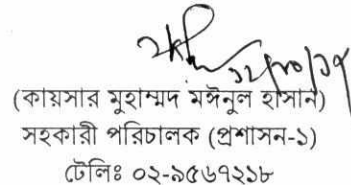 ১২/১০/১৭
(কায়সার মুহাম্মদ মঈনুল হাসান)
সহকারী পরিচালক (প্রশাসন-১)
টেলিঃ ০২-৯৫৬৭২১৮